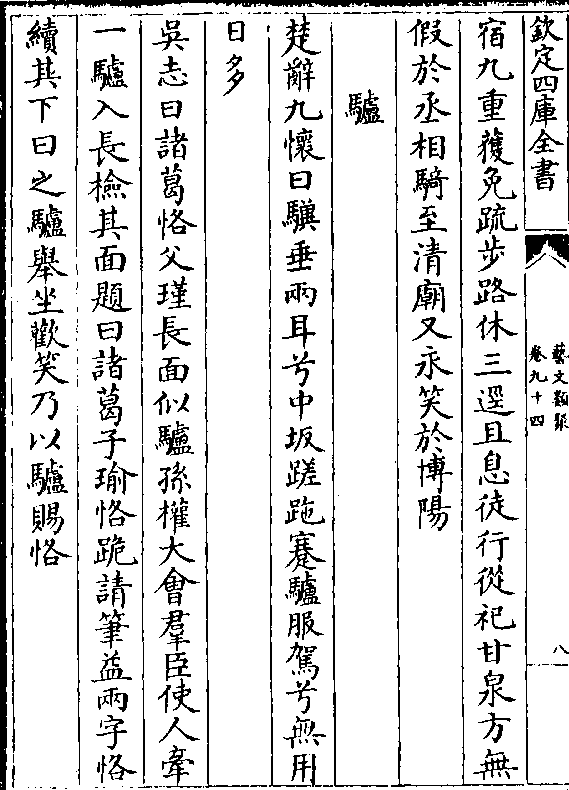 欽定四庫全書
藝文類聚
卷九十四
八
宿九重獲免疏步路休三逕且息徒行從祀甘泉方無
假於丞相騎至清廟又永笑於博陽
驢
楚辭九懷曰驥垂兩耳兮中坂蹉跎蹇驢服駕兮無用
日多
吳志曰諸葛恪父瑾長面似驢孫權大會羣臣使人牽
一驢入長檢其面題曰諸葛子瑜恪跪請筆益兩字恪
續其下曰之驢舉坐歡笑乃以驢賜恪